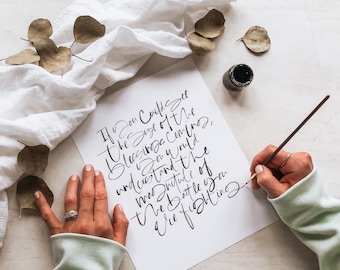 If you could see
the size of the
blessing coming,
you would
understand the
magnitude of
the battle you
are fighting